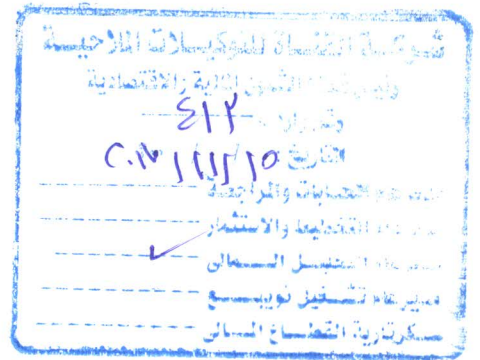 شركة القناة للتوكيلات الملاحية
الشئون المالية والاقتصادية
٤١٢
التاريخ ١٥/١١/٢٠١٧
عام الحسابات والمراجعة
عام التخطيط والاستثمار
مدير عام التحليل المالى
مدير عام تشغيل نويبع
سكرتارية القطاع المالى